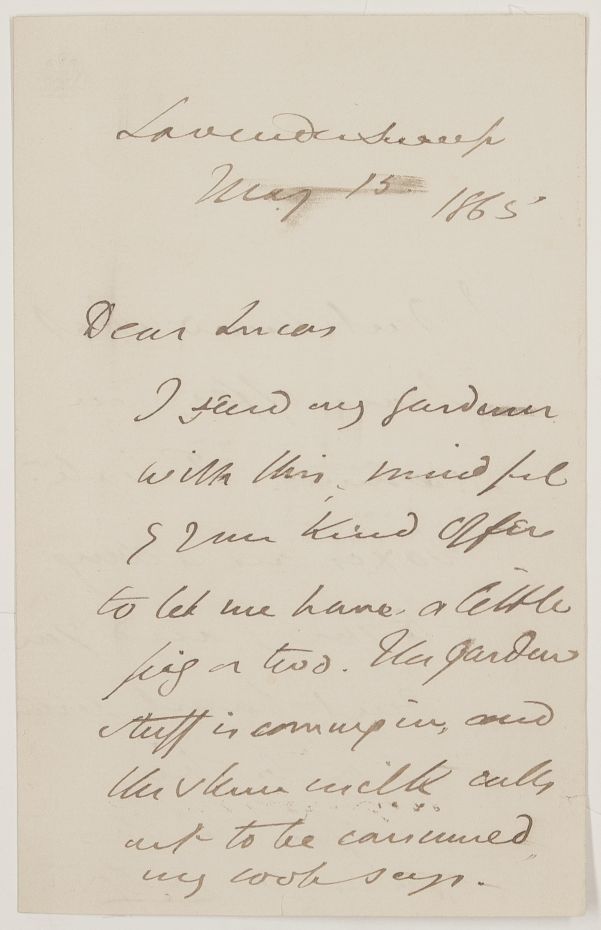 Lavender Sweep
May 15. 1865
Dear Lucas
I send my gardener
with this, mindful
of your kind offer
to let me have a little
pig or two. The garden
stuff is coming in, and
the skim milk calls
out to be consumed
my cook says.